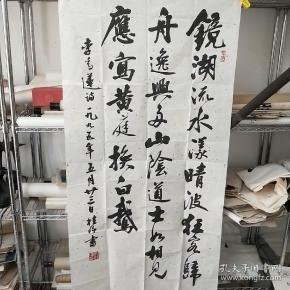 鏡湖流水漾晴波狂客歸
舟逸興多山陰道士如相見
應寫黃庭換白鵝
李青蓮詩一九九五年五月廿三日桂書
孔夫子旧书网